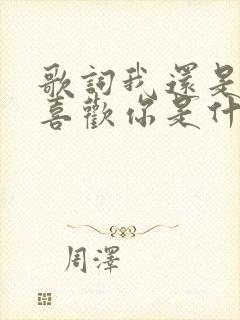 歌詞我還是
喜歡你是什
周澤